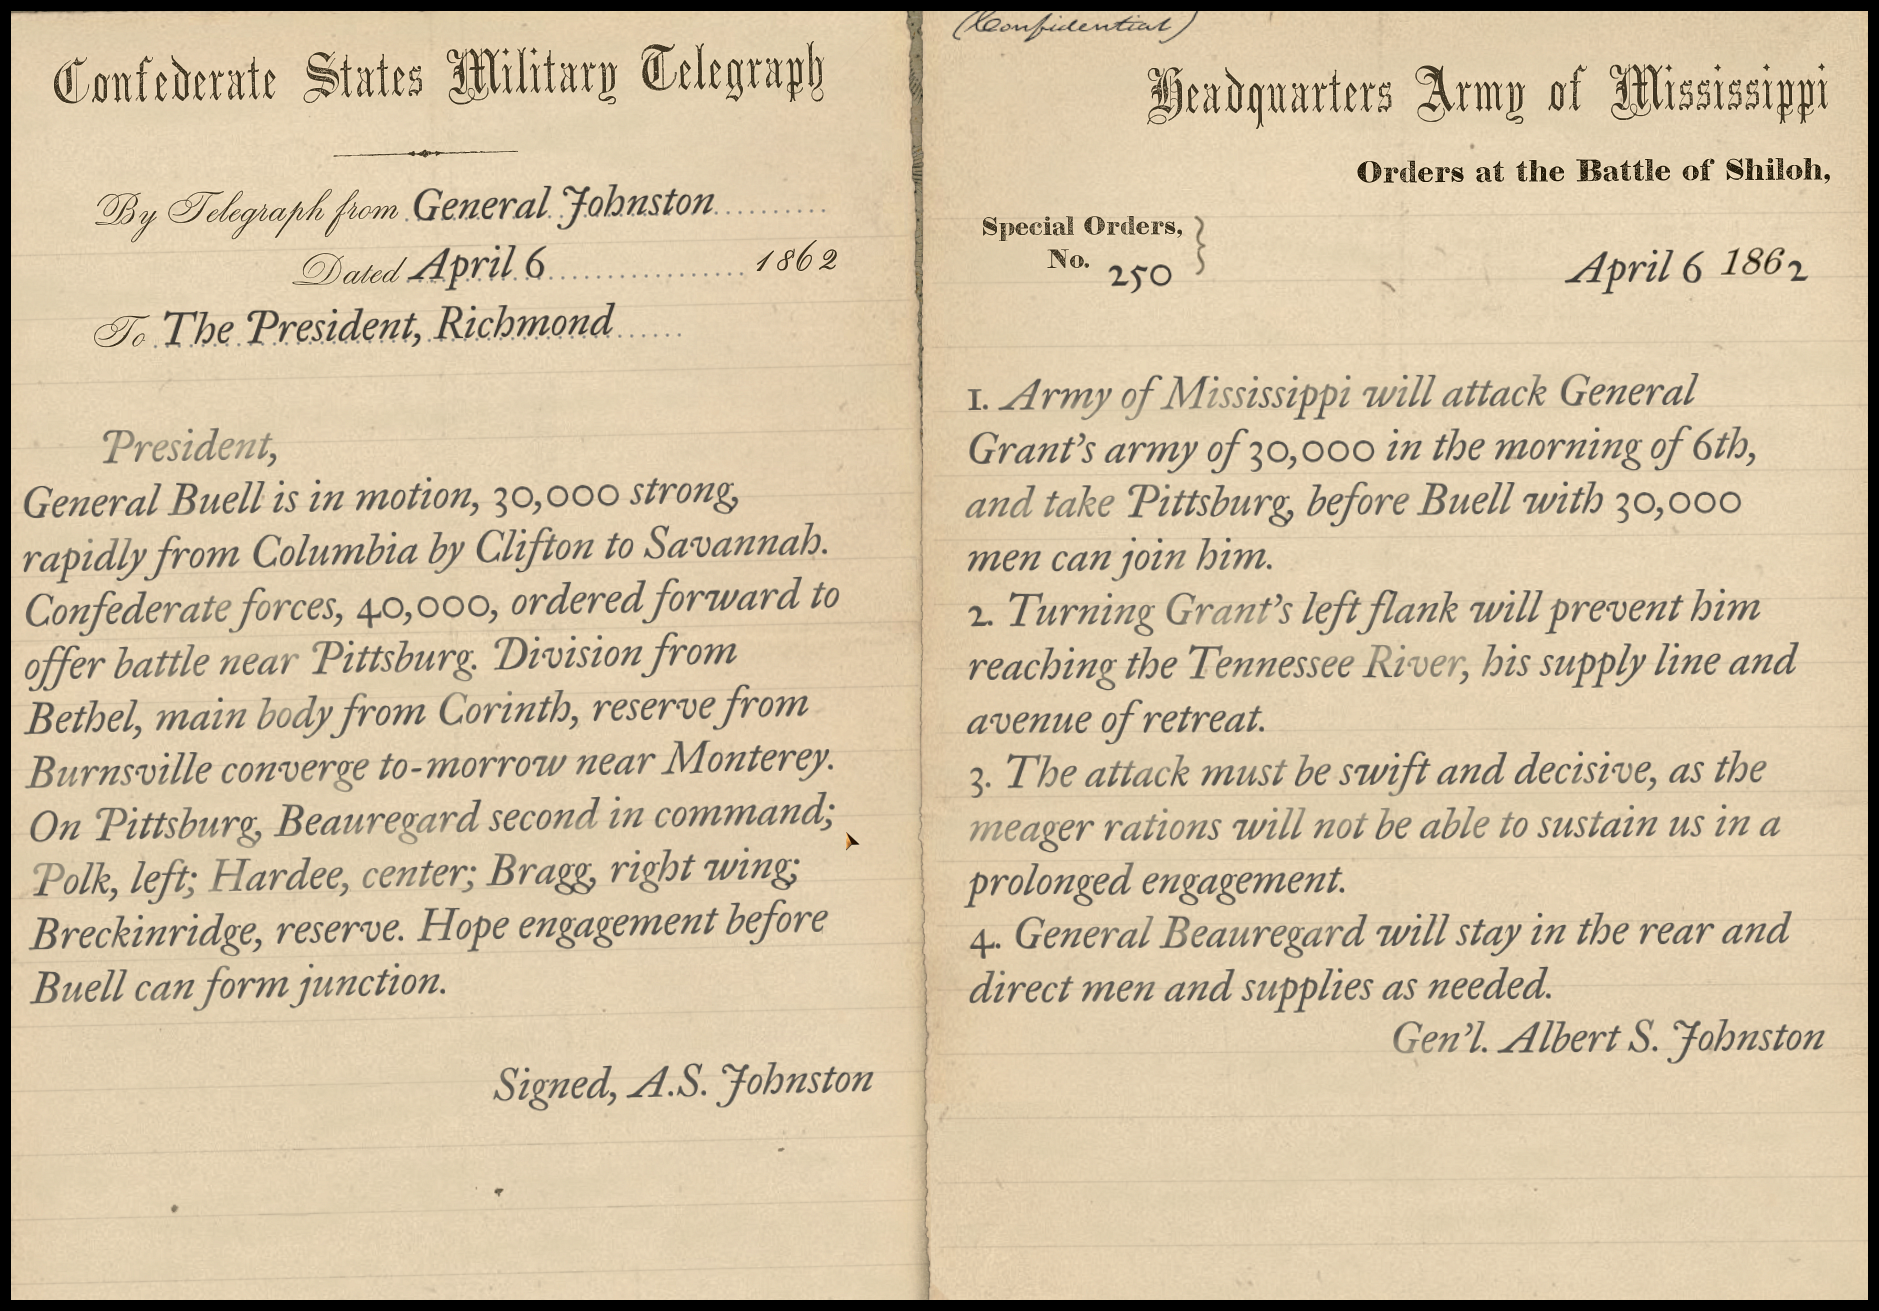 Confederate States Military Telegraph
By Telegraph from General Johnston
Dated April 6 1862
To The President, Richmond
President,
General Buell is in motion, 30,000 strong,
rapidly from Columbia by Clifton to Savannah.
Confederate forces, 40,000, ordered forward to
offer battle near Pittsburg. Division from
Bethel, main body from Corinth, reserve from
Burnsville converge to-morrow near Monterey.
On Pittsburg, Beauregard second in command;
Polk, left; Hardee, center; Bragg, right wing;
Breckinridge, reserve. Hope engagement before
Buell can form junction.
Signed, A.S. Johnston
(Confidential)
Headquarters Army of Mississippi
Orders at the Battle of Shiloh,
Special Orders,
No. 250
April 6 1862
1. Army of Mississippi will attack General
Grant's army of 30,000 in the morning of 6th,
and take Pittsburg, before Buell with 30,000
men can join him.
2. Turning Grant's left flank will prevent him
reaching the Tennessee River, his supply line and
avenue of retreat.
3. The attack must be swift and decisive, as the
meager rations will not be able to sustain us in a
prolonged engagement.
4. General Beauregard will stay in the rear and
direct men and supplies as needed.
Gen'l. Albert S. Johnston